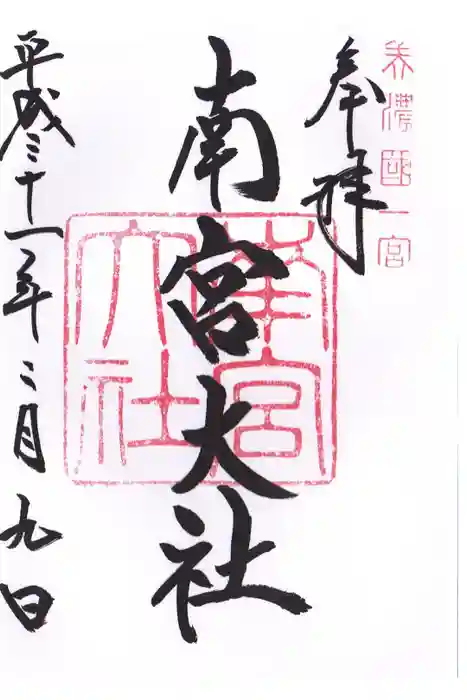 美濃國一宮
奉拝
南宮大社
南宮大社
平成三十一年二月九日